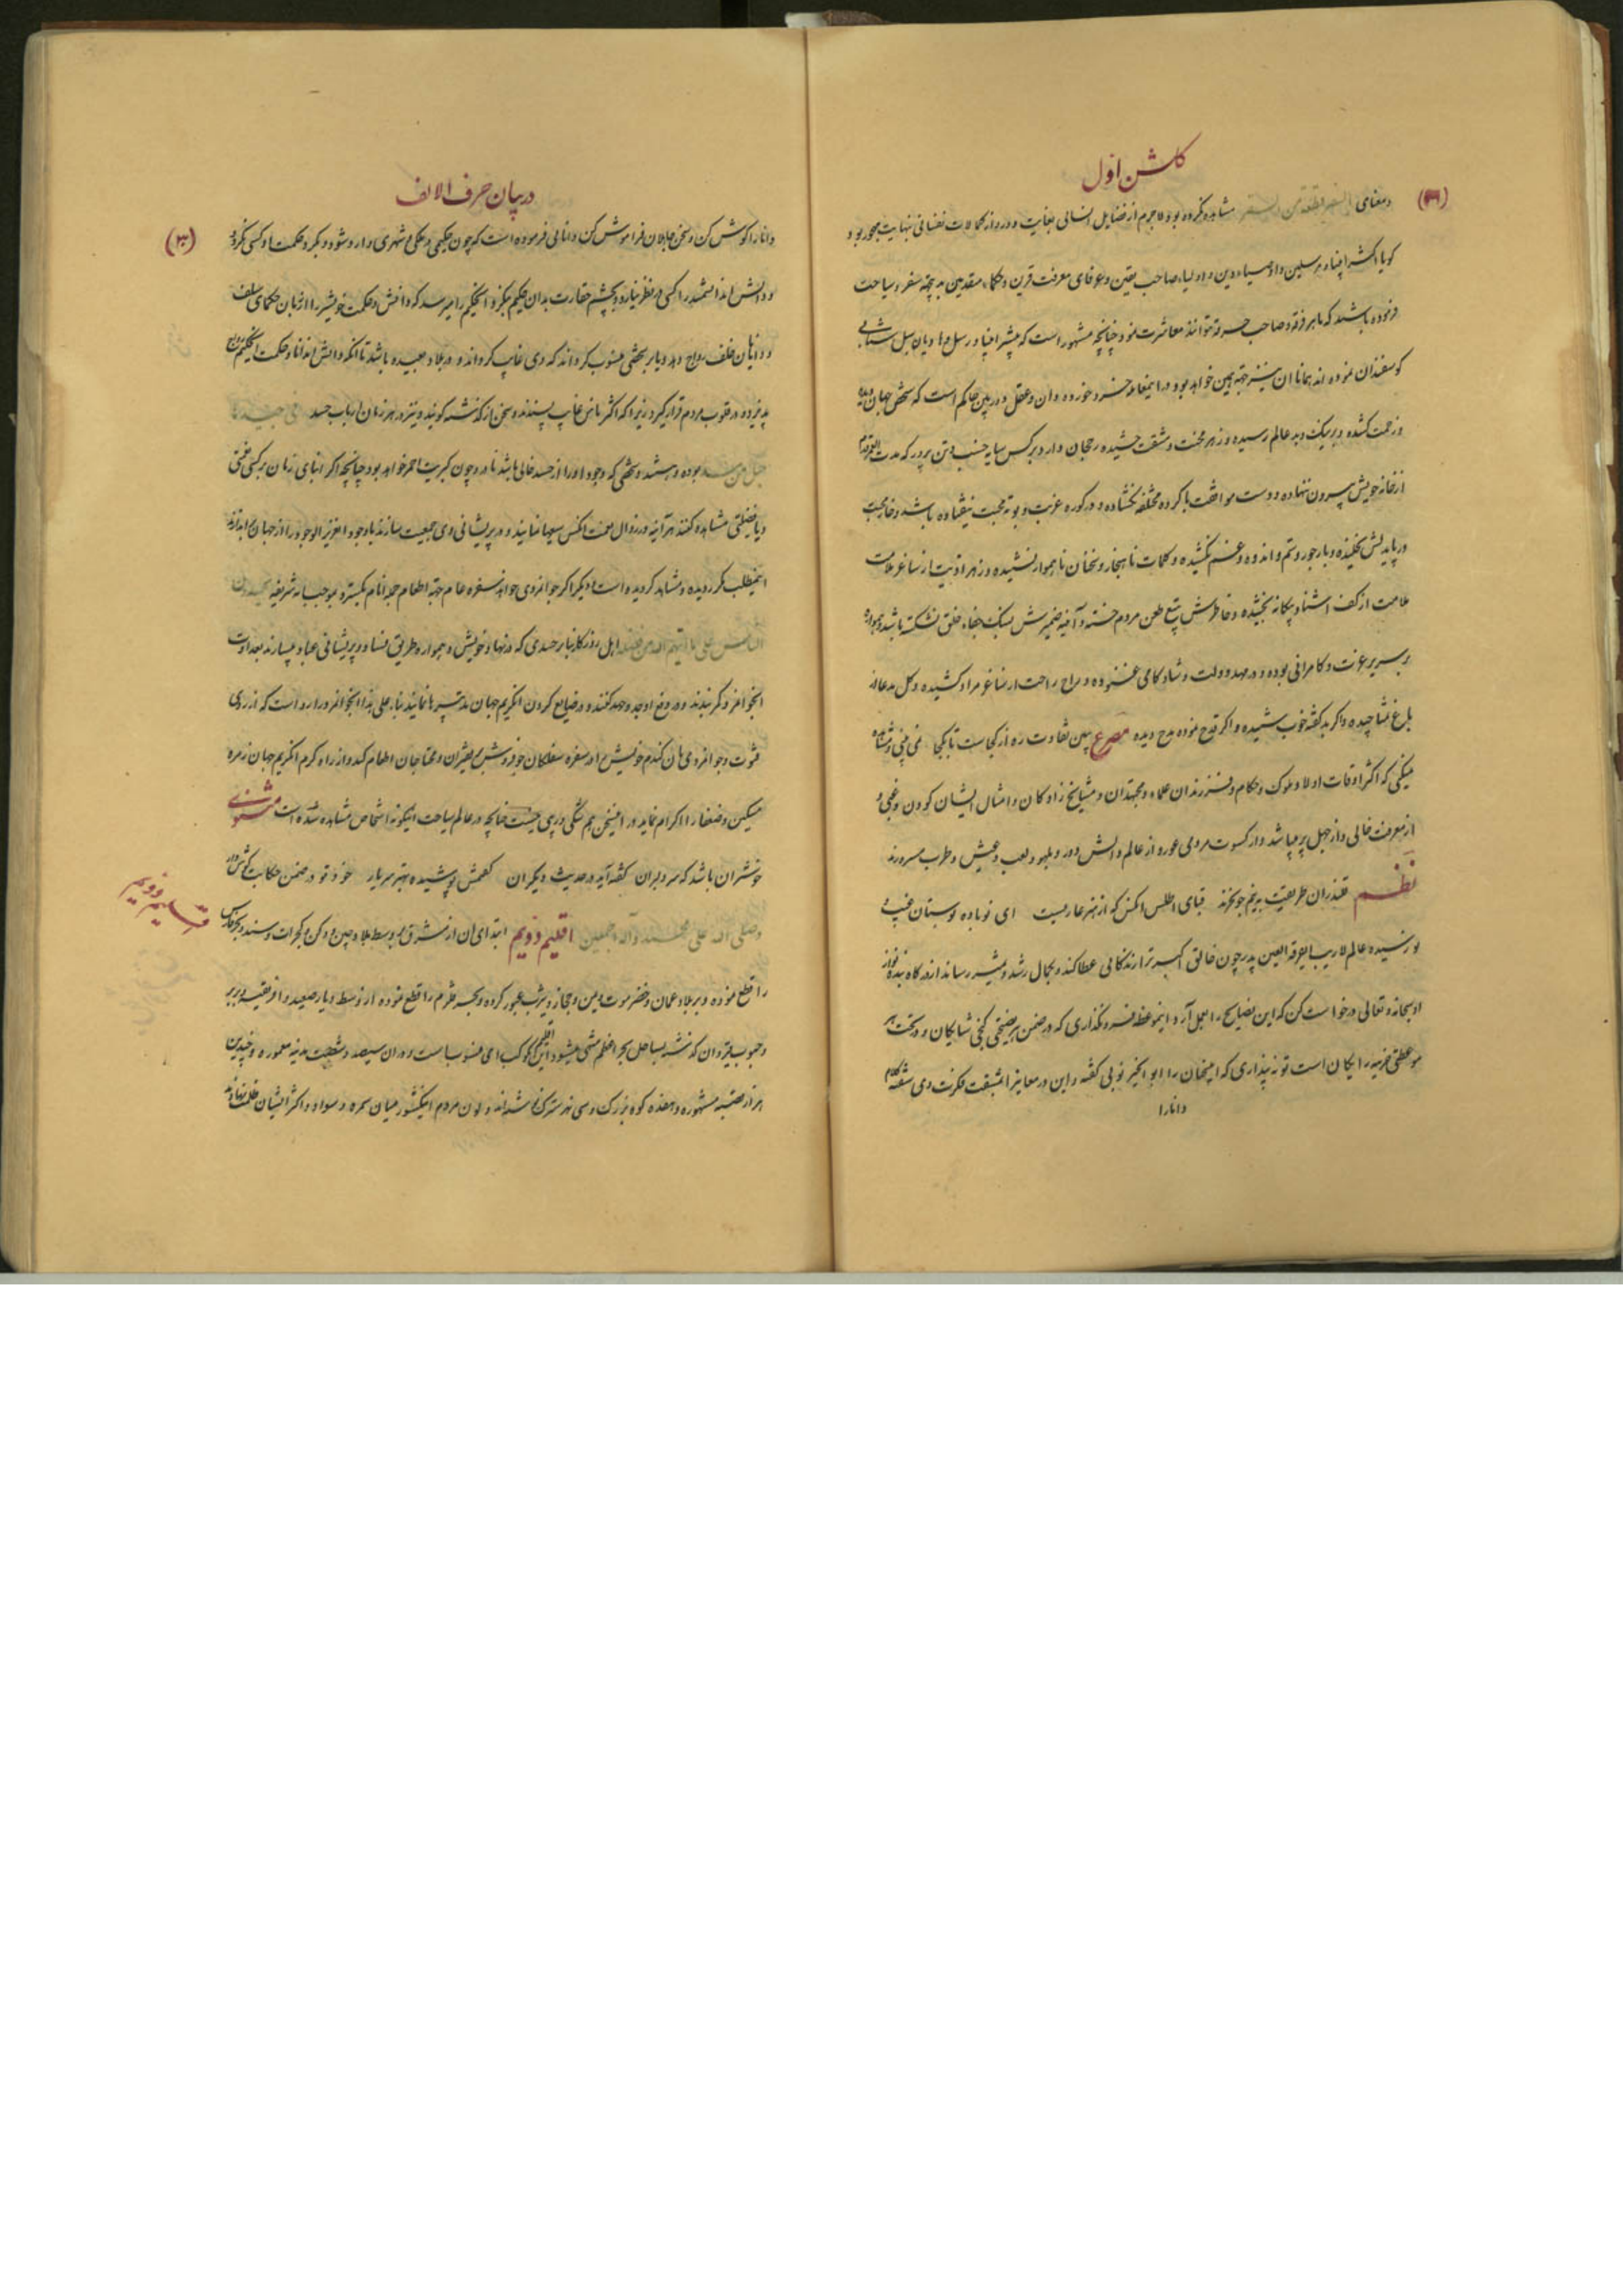 گلشن اول
(۲۹)
ومعنای السفر قطعة من السقر مشاهده نکرده بود لاجرم از فضایل انسانی بغایت دور و از کمالات نفسانی نهایت مهجور بود
کویا اکثر انبیاء مرسلین و اوصیاء دین و اولیاء صاحب یقین و عرفای معرفت قرین و حکماء متقدمین بدین جهة سفر و سیاحت
فرموده باشند که با هر فرقه و صاحب حرفه توانند معاشرت نمود چنانچه مشهور است که بیشتر انبیا و رسل و هادیان سبل شبانی
کوسفندان نموده اند همانا ان نیز جهة همین خواهد بود و در اینمعنا خرد خورده دان و عقل دوربین حاکم است که شخص جهان دیده
و زحمت کشده و بر نیک و بد عالم رسیده و زهر محنت و مشقت چشیده رجحان دارد بر کس سایه خسب و تن پرور که مدت العمر قدم
از خانه خویش بیرون ننهاده و دست موافقت با کروه مختلفه نکشاده و در کوره غربت و بوته محبت نیفتاده باشد و خار محبت
در پای دلش نخلیده و بار جور و ستم و اندوه و غم نکشیده و کلمات ناهنجار و سخنان ناهموار نشنیده و زهر اذیت از ساغر ملامت
ملامت از کف اشنا و بیکانه نچشیده و خاطرش بتیغ طعن مردم خسته و آئینه ضمیرش بسنک جفاء خلق نشکسته باشد و همواره
بر سریر عزت و کامرانی بوده و در مهد دولت و شادکامی غنوده و راح راحت از ساغر مراد کشیده و کل مدعا از
باغ نشا چیده و اکر بد کفته خوب شنیده و اکر قدح نموده مدح دیده مصرع ببین تفاوت ره از کجاست تا بکجا نمی بینی و مشاهده
میکنی که اکثر اوقات اولاد ملوک و حکام و فرزندان علماء و مجتهدان و مشایخ زادکان و امثال ایشان کودن و غبی و
از معرفت خالی و از جهل پر میباشد و از کسوت مردمی عور و از عالم دانش دور و بلهو و لعب و عیش و طرب مسرورند
نظم قلندران طریقت به نیم جو نخرند قبای اطلس انکس که از هنر عاریست ای نوباوه بوستان غیب و
نورسیده عالم لاریب ایقرة العین پدر چون خالق اکبر ترا زندکانی عطا کند و بکمال رشد و تمییز رساند از درکاه بنده نواز
او سبحانه و تعالی درخواست کن که این نصایح را بعمل آر و اینموعظه فرو نکذاری که در ضمن هر نصیحتی کنجی شایکان و در تحت هر
موعظتی خزینه رایکان است تو نه پنداری که اینسخنان را ابو الخیر نوبی کفته و این در معانیرا بمثقب فکرت وی سفته کلام
دانارا
در بیان حرف الالف
(۳۰)
دانا را کوش کن و سخن جاهلان فراموش کن دانایی فرموده است که چون حکیمی در ملکی و شهری وارد شود و بکرد حکمت او کسی نکردد
و دانش انداشمند را کسی در نظر نیارد و بچشم حقارت بدان حکیم بنکرد انحکیم را میرسد که دانش و حکمت خویشرا از زبان حکمای سلف
و دانایان خلف رواج دهد و یا بر شخصی منسوب کرداند که وی غایب کردد و در بلاد بعیده باشد تا انکه دانش اندانا و حکمت انحکیم رواج
پذیرد و در قلوب مردم قرار کیرد زیرا که اکثر ناس غایب پسندند و سخن از کذشته کویند و نیز در هر زمان ارباب حسد
بوده و هستند و شخصی که وجود او را از حسد خالی باشد نادر و چون کبریت احمر خواهد بود چنانچه اکر ابنای زمان بر کسی نعمتی
و یا فضیلتی مشاهده کنند هر آینه در زوال نعمت انکس سعیها نمایند و در پریشانی وی جمعیت سازند
اینمطلب مکرر دیده و مشاهده کردیده است دیکر اکر جوانمردی خواهد سفره عام جهة اطعام جمله انام بکسترد بموجب آیه شریفه
الناس علی ما اتیهم الله من فضله اهل روزکار بنابر حسدی که در نهاد خویش و همواره طریق فساد و پریشانی عباد میسپارند بعداوت
انجوانمرد کمر بندند و در دفع او جد و جهد کنند و در ضایع کردن انکریم جهان تدبیرها نمایند بناء علی هذا انجوانمرد را رواست که از روی
فتوت و جوانمردی نان کندم خویش را در سفره سفلکان جو فروش بفقیران و محتاجان اطعام کند و از راه کرم انکریم جهان زمره
مسکین و ضعفا را اکرام نماید در اینسخن هم شکی و ریبی نیست چنانچه در عالم سیاحت اینکونه اشخاص مشاهده شده است مثنوی
خوشتر ان باشد که سر دلبران کفته آید در حدیث دیکران کفتمش پوشیده بهتر سر یار خود تو در ضمن حکایت کوش دار
وصلی الله علی محمد وآله اجمعین اقلیم دویم ابتدای ان از مشرق بوسط بلاد چین و دکن و کجرات و سند و بحر فارس
را قطع نموده و بر بلاد عمان و حضرموت و یمن و حجاز و یثرب عبور کرده و بحر قلزم را قطع نموده از وسط دیار صعید و افریقیه و بربر
و جنوب قیروان کذشته بساحل بحر اعظم منتهی میشود این اقلیم بکوکب منسوب است و در ان سیصد و شصت مدینه معموره و چندین
هزار قصبه مشهوره و هفده کوه بزرک و سی نهر سترک و لون مردم اینکشور میان سمره و سواد و اکثر ایشان
اقلیم دویم